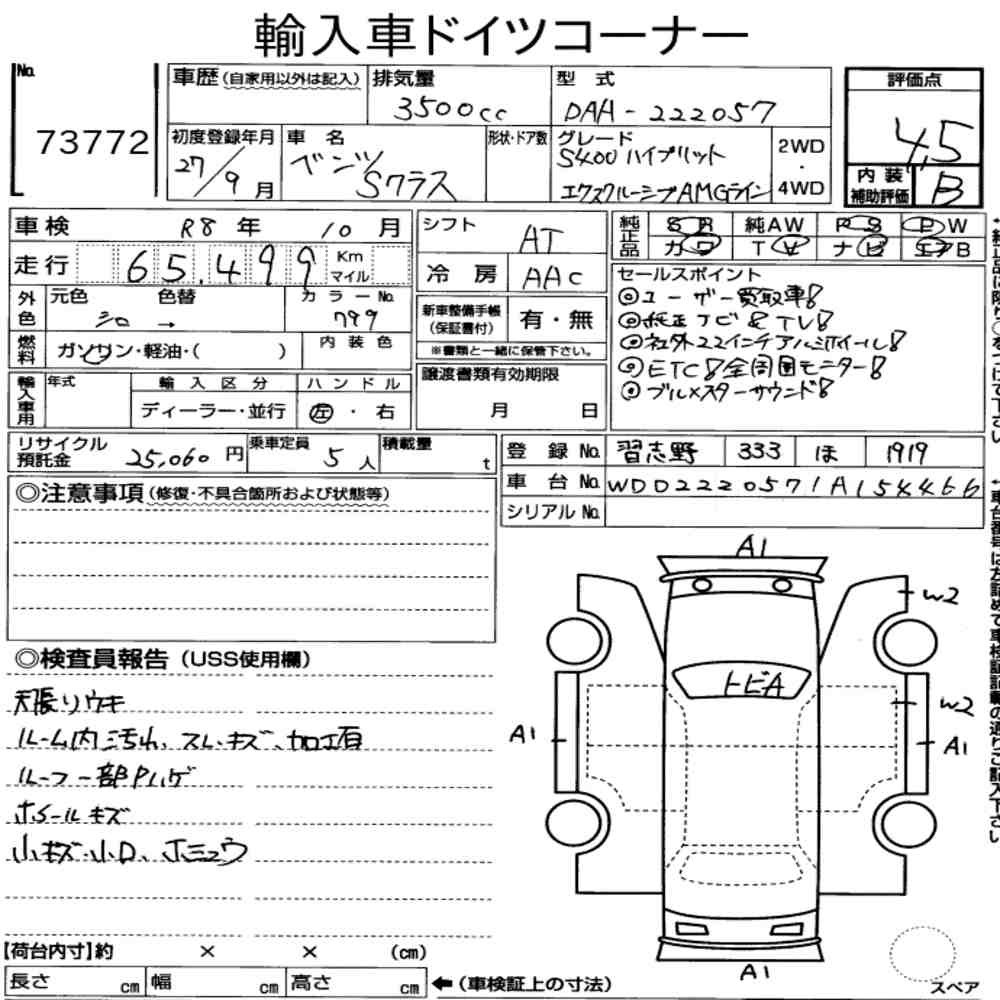 輸入車ドイツコーナー
No.
73772
車歴(自家用以外は記入)
排気量
3500cc
型 式
DAA-222057
評価点
4.5
初度登録年月
27/9月
車 名
ベンツ
Sクラス
形状・ドア数
グレード
S400ハイブリット
エクスクルーシブAMGライン
2WD
・
4WD
内装
補助評価
B
車検
R8年
10月
シフト
AT
純正品
SR
純AW
PS
PW
カワ
TV
ナビ
エアB
走行
65,499
Km
マイル
冷 房
AAC
外色
元色
色替
シロ →
カラーNo.
799
新車整備手帳
(保証書付)
有・無
※書類と一緒に保管下さい。
セールスポイント
◎ユーザー買取車!
◎純正ナビ&TV!
◎社外22インチアルミホイール!
◎ETC!全周囲モニター!
◎ブルメスターサウンド!
燃料
ガソリン・軽油・( )
内装色
輸入車用
年式
輸入区分
ディーラー・並行
ハンドル
左・右
譲渡書類有効期限
月 日
リサイクル
預託金
25,060円
乗車定員
5人
積載量
t
登 録 No.
習志野
333
ほ
1919
車 台 No.
WDD2220571A154466
シリアル No.
◎注意事項(修復・不具合箇所および状態等)
◎検査員報告(USS使用欄)
天張りウキ
ルーム内汚れ、スレ・キズ、加工有
ルーフ一部Pハゲ
ホイールキズ
小キズ・小凹、
A1
W2
トビA
W2
A1
A1
A1
スペア
【荷台内寸】約 × × (cm)
長さ cm
幅 cm
高さ cm
←(車検証上の寸法)